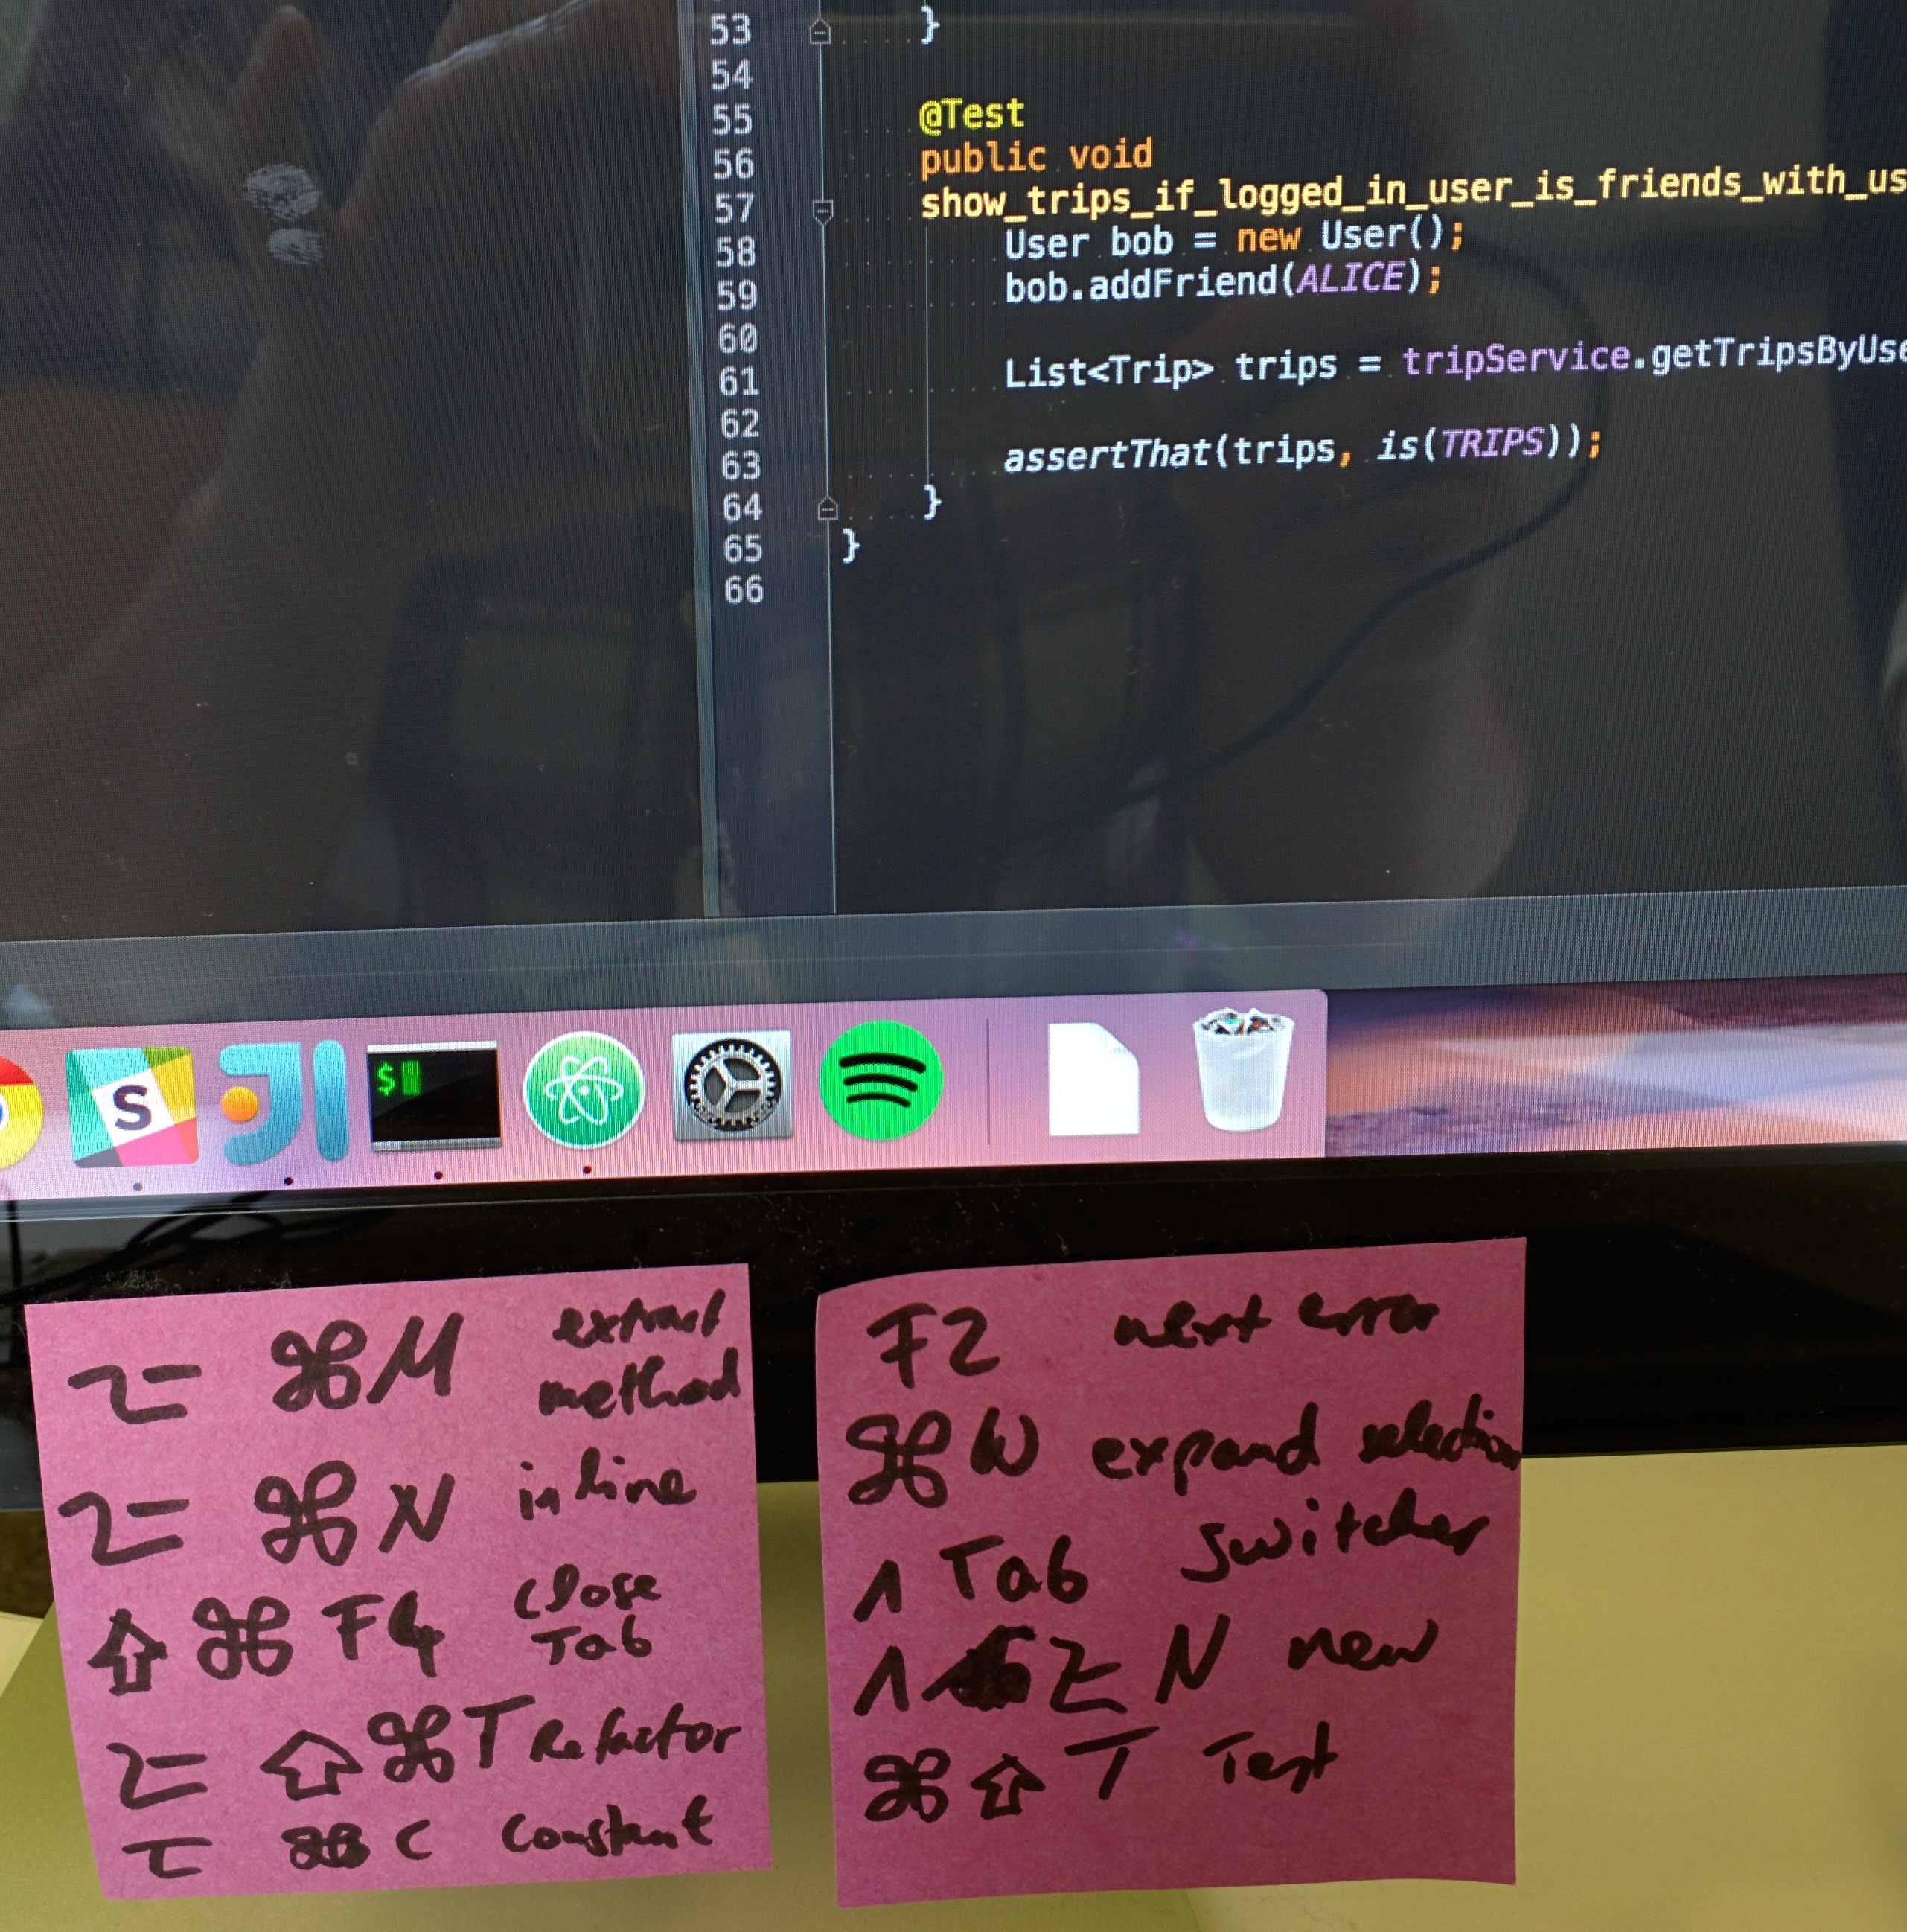 53 }
54
55 @Test
56 public void
57 show_trips_if_logged_in_user_is_friends_with_us
58 User bob = new User();
59 bob.addFriend(ALICE);
60
61 List<Trip> trips = tripService.getTripsByUse
62
63 assertThat(trips, is(TRIPS));
64 }
65 }
66
S
$
⌥ ⌘ M extract
method
⌥ ⌘ N inline
⇧ ⌘ F4 close
Tab
⌥ ⇧ ⌘ T Refactor
⌥ ⌘ C constant
F2 next error
⌘ W expand selection
^ Tab switcher
^ ⌥ N new
⌘ ⇧ T Test